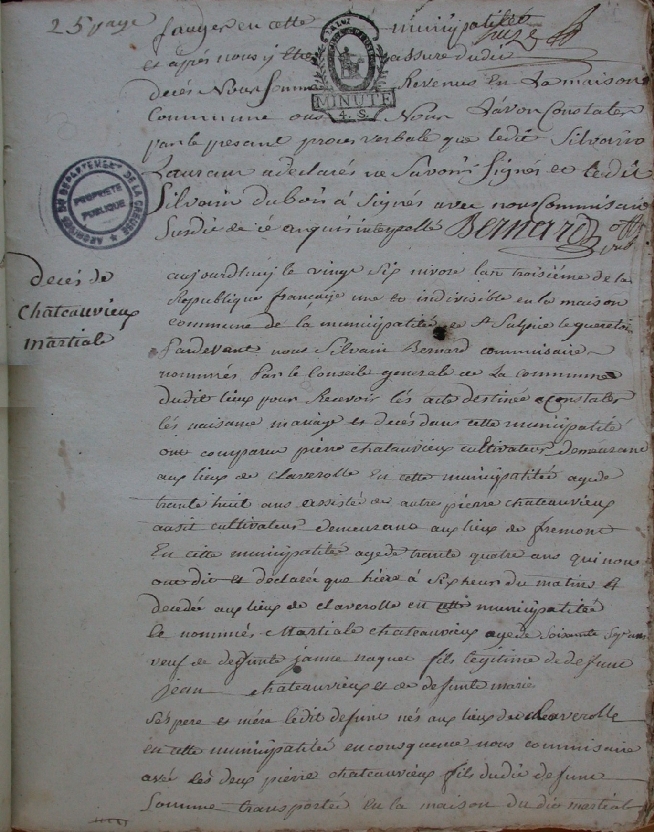 25 page
en cette municipalité
et après nous y être assuré dudit
décés Nous somme Revenus En La maison
Commune ou Nous Lavon Constater
par le present proces verbale que ledit Silvain
Lauran a declarés ne Savoir Signés et ledit
Silvain dubois à Signés avec nous Commisaire
Susdit de ce enquis interpellé Bernard off
pub
LA LOI
MINUTE
4. S.
ARCHIVES DU DEPARTEMENT DE LA CREUSE
PROPRIÉTÉ
PUBLIQUE
decés de
Chateauvieux
martiale
aujourdhuy le vingt Six nivose lan troisiéme de la
Republique française une et indivisible en la maison
commune de la municipalitée de St Sulpice le gueretois
Pardevant nous Silvain Bernard commisaire
nommés Par le Conseile generale de La commune
dudit lieux pour Recevoir lés acte destinée a Constater
lés naisance mariage et decés dans cette municipalité
ont comparu pierre chataurieux cultivateur demeurant
aux lieux de claverolle En cette municipalitée agé de
trante huit ans assisté de autre pierre chateauvieux
ausit cultivateur demeurant aux lieux de fremont
En cette municipalitée agé de trante quatre ans qui nous
ont dit et déclaré que hière à Six heur du matins Et
decedée aux lieux de claverolle en cette municipalitée
le nommés Martiale chateauvieux agé de Soixante
veuf de defunte janne naquet fils legitime de defunt
jean chateauvieux et de defunte marie
Ses pere et mére ledit defunt nés aux lieux de claverolle
en cette municipalitée en consequence nous commisaire
avec Les deux pierre chateauvieux fils dudit defunt
Somme transportée En la maison du dit martiale